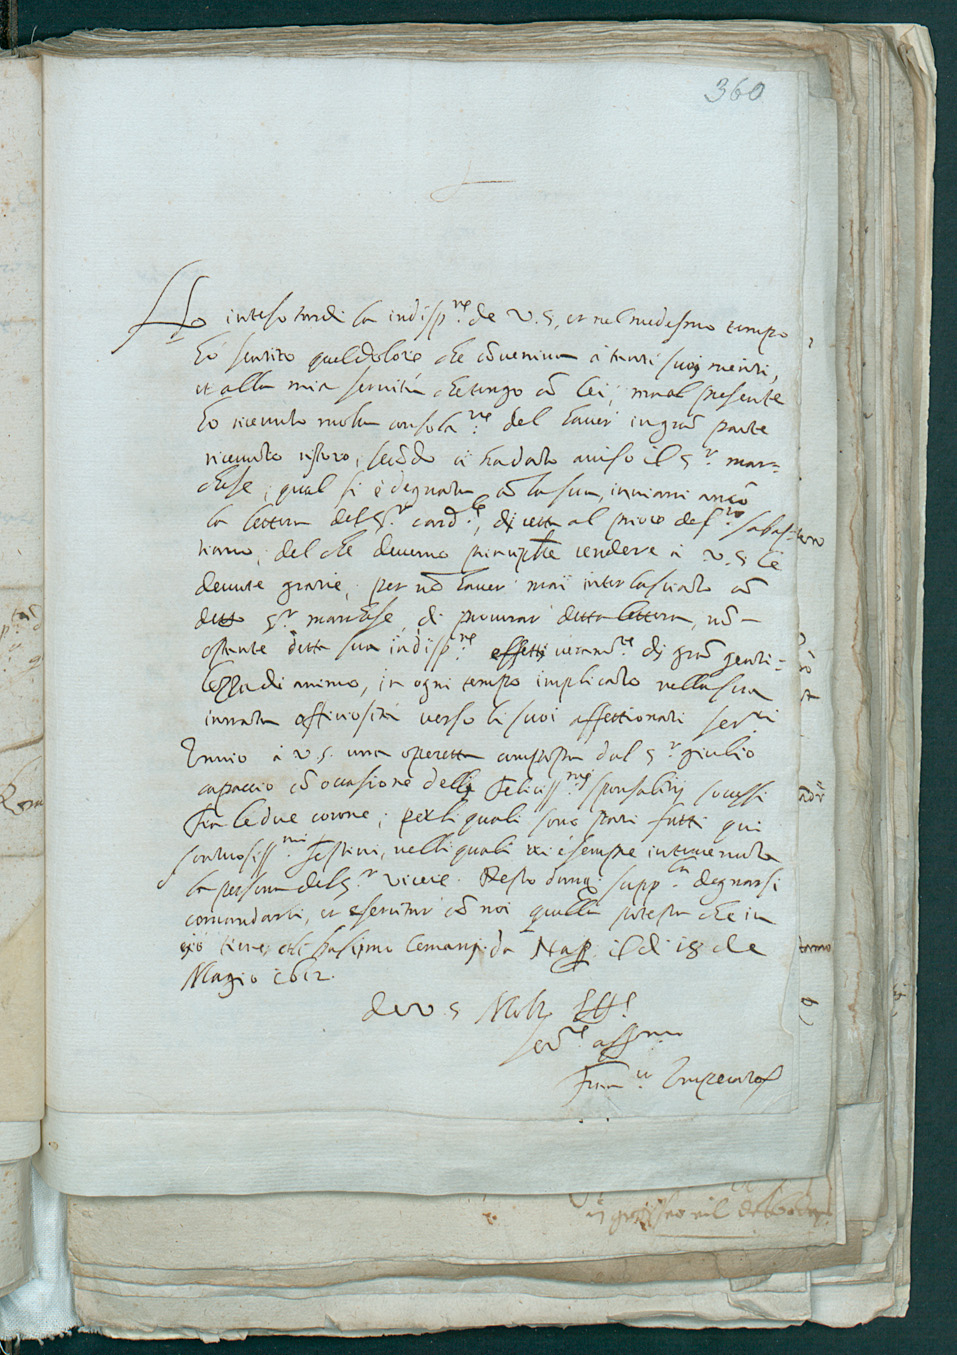 360
Ho inteso tardi la indisp.ne de V.S, et nel medesmo tempo
hò sentito quel dolore che cōveniva à tanti suoi meriti,
et alla mia servitù che tengo cō lei; ma al presente
ho ricevuto molta consola.ne del haver in grā parte
ricevuto ristoro, secōdo ci ha dato aviso il S.r mar=
chese, qual si è degnata cō la sua, inviarci ancō
la lettera del S.r Card.le, diretta al prior de S.to Sabas=
tiano, del che devemo principal.te rendere à V.S le
devute gratie, per nō haver mai interlasciato cō
detto S.r marchese, di procurar detta lettera, nō
ostante ditta sua indisp.ne effetti veram.te di grā genti=
lezza di animo, in ogni tempo implicato nella sua
innata officiosità verso li suoi affettionati ser.ri
Invio à V.S. una operetta composta dal S.r Giulio
Capaccio cō occasione delli felicis.mi sponsalitij successi
fra le due corone, per li quali sono stati fatti qui
sontuosiss.mi festini, nelli quali vi è sempre intervenuta
la persona del S.r Vicere. Resto dunq supp.la degnarsi
comandarci, et esercitar cō noi quella potestà che in
ciò tiene, et li basciamo le mani, da Nap. il di 18 de
Magio 1612.
de V.S Molto Ill.
ser.re aff.mo
Fran.co Imperato